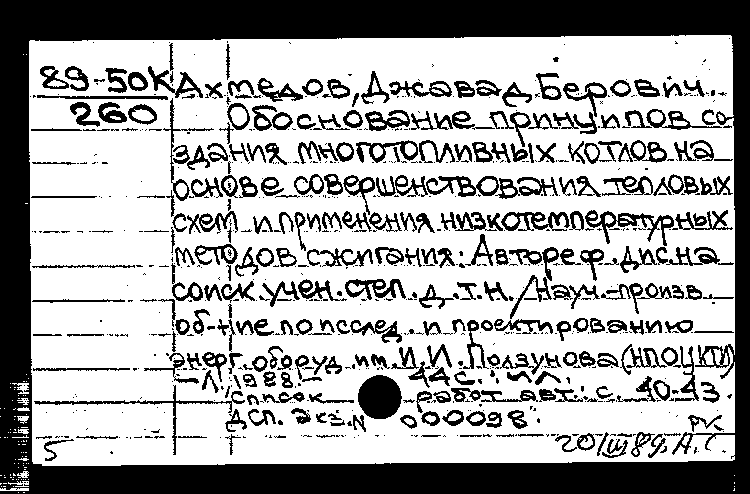 89-50К Ахмедов, Джавад Берович.
260 Обоснование принципов со-
здания многотопливных котлов на
основе совершенствования тепловых
схем и применения низкотемпературных
методов сжигания: Автореф. дис. на
соиск. учен. степ. д.т.н. / Науч.-произв.
об-ние по исслед. и проектированию
энерг. оборуд. им. И.И. Ползунова (НПОЦКТИ)
– Л., 1988. – 44 с.: ил.
Список работ авт.: с. 40-43.
ДСП. Экз. N 000098.
РК
5 20/III 89, А.С.